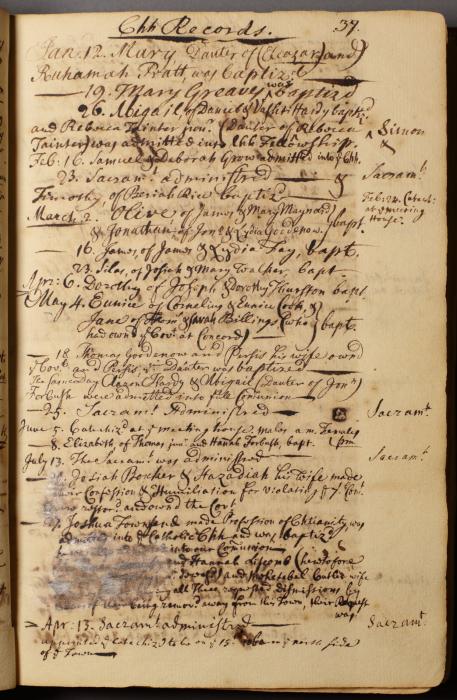 Chh Records. 37.
Jan. 12. Mary Dauter of (Eleazar and)
Ruhamah Pratt, was baptiz'd
19. Mary Greaves was baptiz'd
26. Abigail, of Daniel & Vashti Hardy baptiz'd
and Rebecca Tainter junr. (Dauter of Rebecca
Tainter) was admitted into Chh Fellowship.
Simon
&
Feb. 16. Samuel & Deborah Grow admitted into ye Chh.
23. Sacramt. administred &
Sacramt.
Timothy, of Beriah Rice baptiz'd
Feb. 24. Catech:
at meeting
House.
March 2. Olive of James & Mary Maynard
& Jonathan of Jona. & Lydia Goodenow, bapt.
16. James, of James & Lydia Fay, bapt.
23. Silas, of Josiah & Mary Walker, bapt
Apr: 6. Dorothy of Joseph & Dorothy Thurston bapt.
May 4. Eunice of Cornelius & Eunice Cook, &
Jane of & Sarah Billings (who bapt.
had own'd ye Covt. at Concord)
18. Thomas Goodenow and Persis his wife own'd
ye Covt. and Persis yr. Dauter was baptized
Ye same day Aaron Hardy & Abigail (Dauter of Jona.)
Forbush were admitted into full Comunion
25. Sacramt. Administred
Sacramt.
June 5. Catechiz'd at ye meeting house. Males a.m. Females
pm.
8. Elizabeth of Thomas junr. and Hanah Forbush, bapt.
July 13. The Sacramt. was administred
Sacramt.
Josiah Bowker & Hazadiah his Wife made
their Confession & Humiliation for violating ye 7. Com.
and own'd the Covt
Joshua Townsend made Profession of Christianity, was
admitted into ye Catholic Chh and was baptiz'd
into our Comunion
and Hannah Liscomb (heretofore
and Mehetebel Cutler wife
all These requested dismissions by
being remov'd away from this Town, their Request
was
Apr: 13. Sacramt. administred
Sacramt.
appointed Catechiz'd to be on ye 15. north side
of ye Town